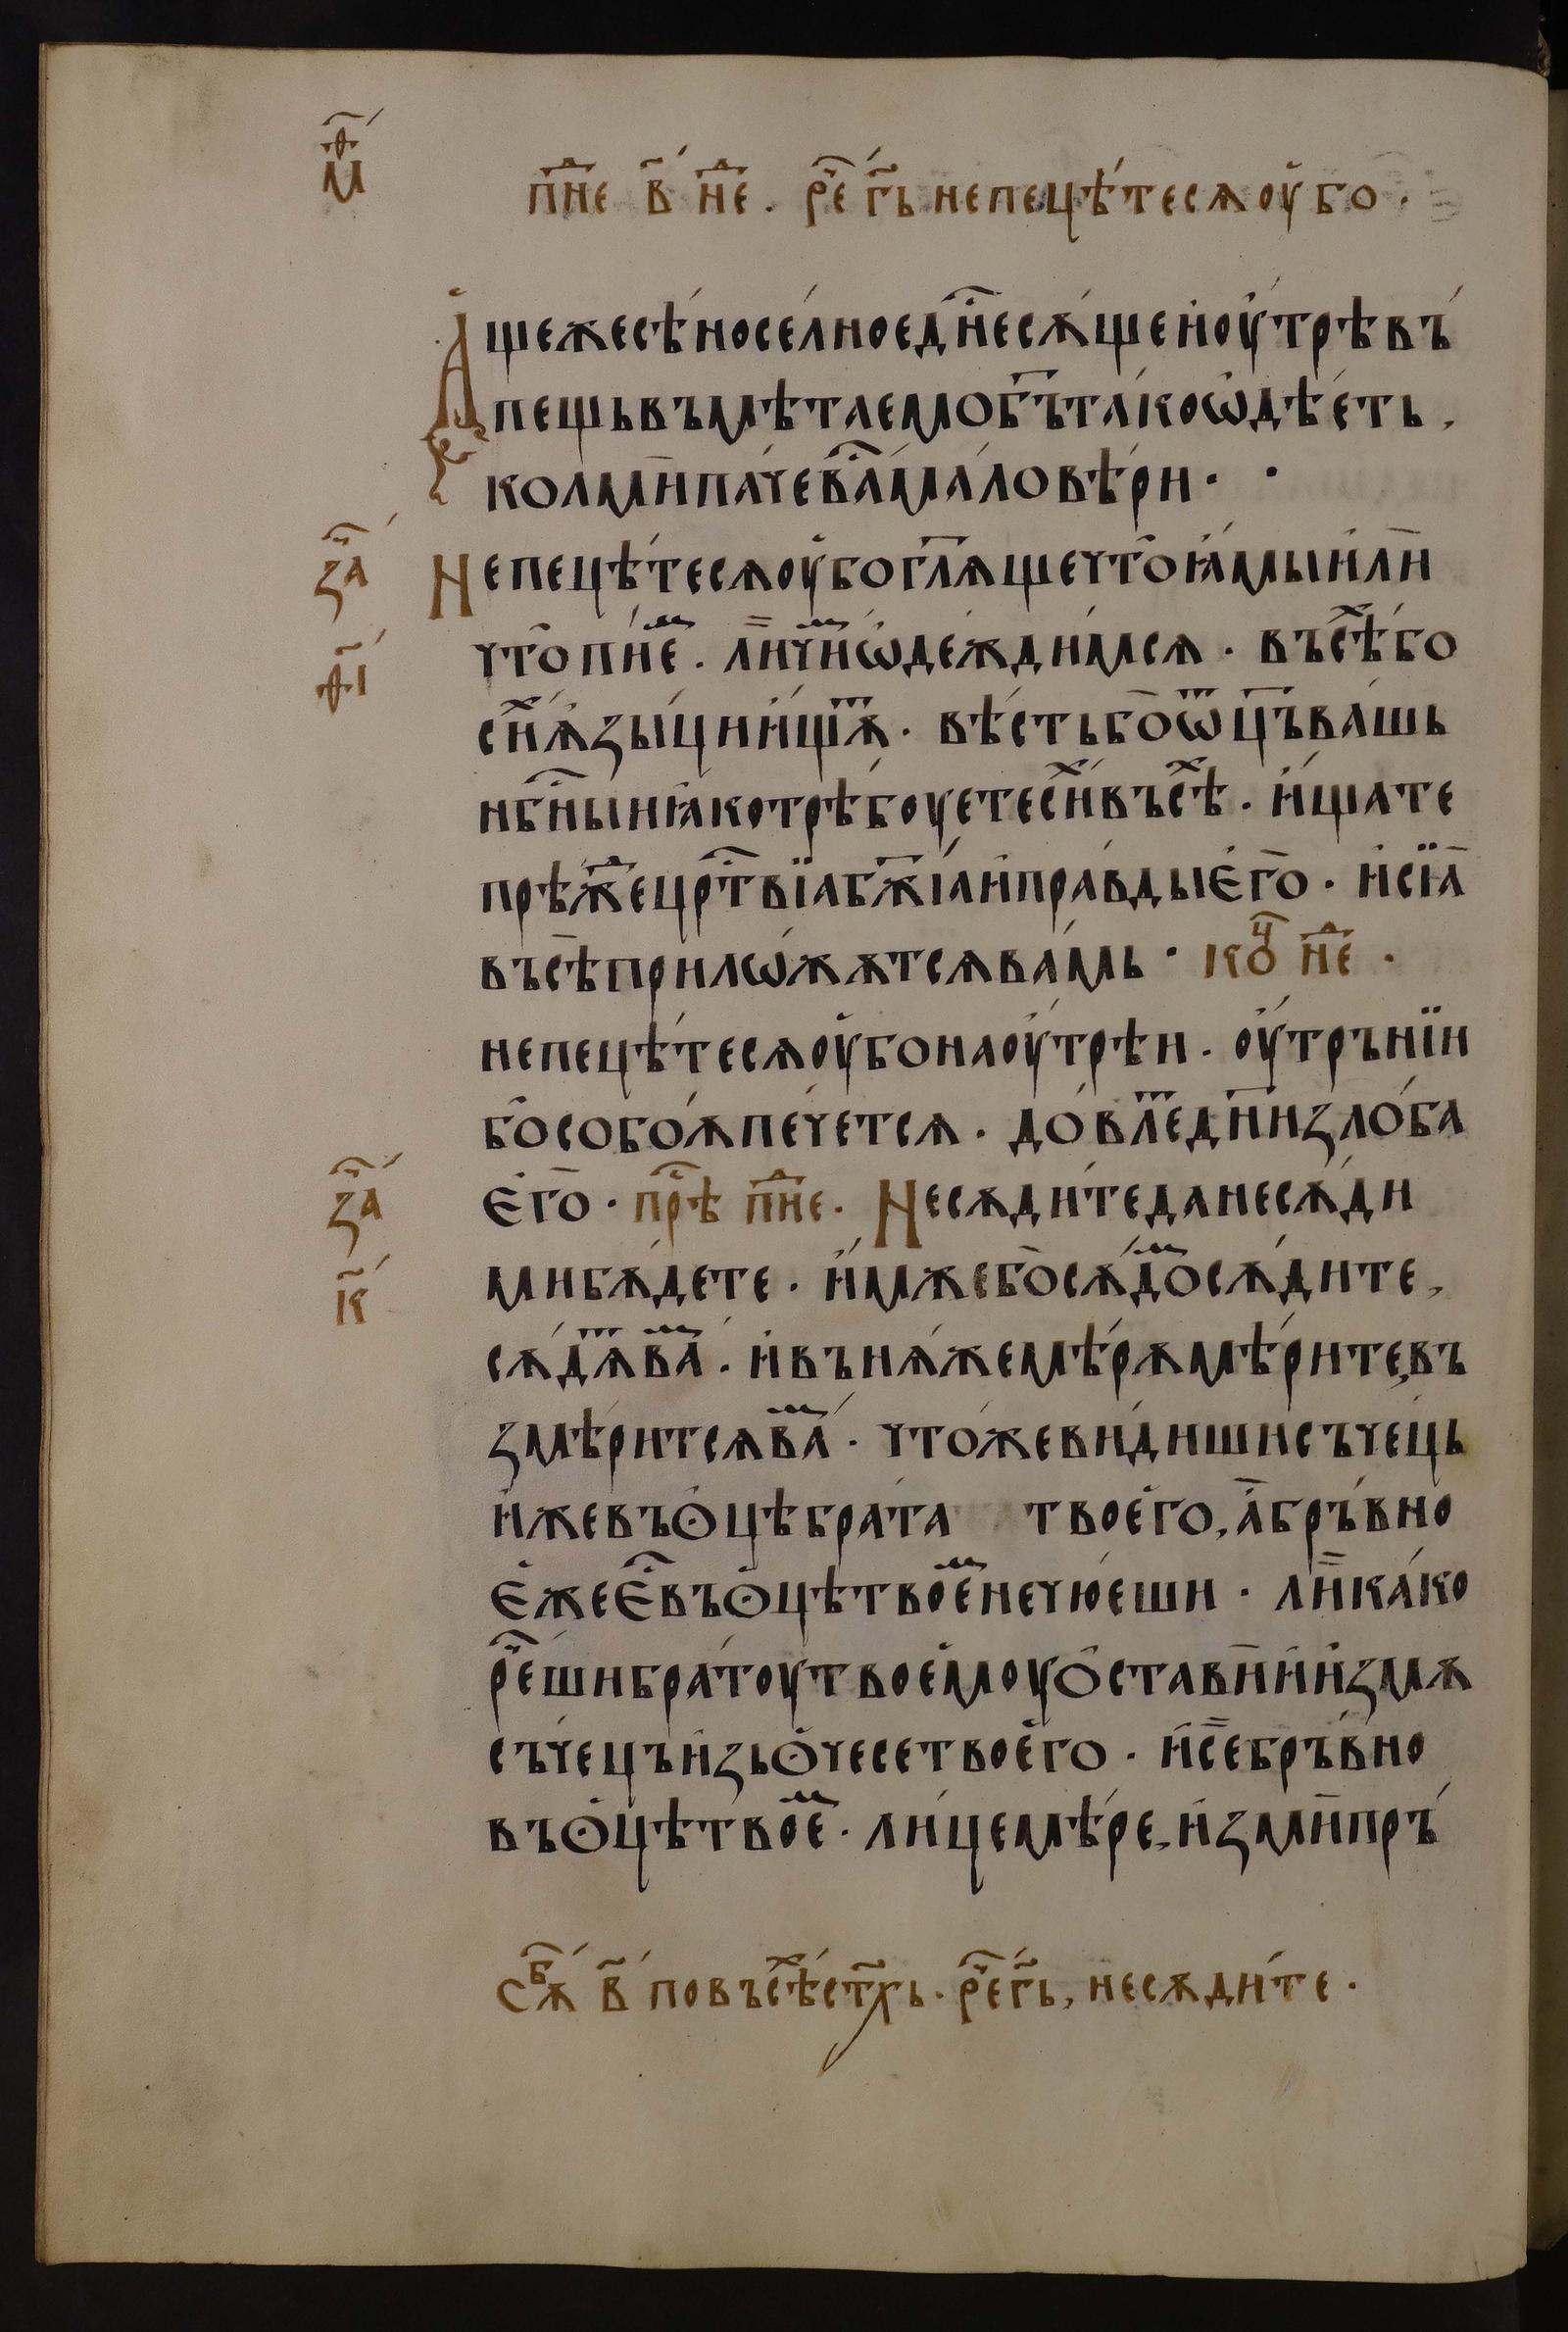 мѳ҃
пнⷣе в҃ нⷣе. рⷱ҇е гь҃ непецѣ́тесѧоу҆бо.
А҆
щежесѣ́носе́лноеднⷭ҇есѫ́щеи҆оу҆́трѣвъ́
пещьвъмѣ́таемобъ҃та́коѡ҆дѣ́еть,
колми҃па́чевⷭ҇ама́ловѣ́ри.
заⷱ҇
Непецѣ́тесѧоу҆богл҃ѫщечто҆ꙗ҆́мыи҆ли҃
ѳ҃і
что҆пїеⷨ. ли҃чиⷨѡ҆де́ждимсѧ. въсѣⷯ́бо
сиⷯѧ҆зы́ции҆́щѫⷮ. вѣ́стьбо҃ѿц҃ъва́шь
нбⷭ҇ныиꙗ҆́котрѣ́боуетесиⷯвъсѣⷯ. и҆щате
прѣ́жⷣецрⷭ҇твїабж҃їаи҆пра́вдыє҆го҃. и҆сїа҃
въсѣ҃прилѡ́жѫтсѧва́мь. коⷱ҇ нⷣе.
непецѣ́тесѧоу҆бонаоу҆́трѣи. оу҆́трънїи
бо҃собо́ѫпече́тсѧ. до́влеⷮдн҃изло́ба
заⷱ҇
є҆го҃. прⷣѣ пнⷣе. Несѫди́теданесѫ́ди
к҃
мибѫ́дете. и҆́мжебо҃сѫдоⷨсѫ́дите,
сѫ́дѧⷮваⷨ. и҆вънѫ́жемѣ́рѫмѣ́рите,въ
змѣ́ритсѧваⷨ. что́жеви́дишисъче́ць
и҆́жевъꙩ҆́цѣбра́та твоего, а҆бръ́вно
є҆́жеєⷭ҇въꙩ҆́цѣтвоеⷨнечю́еши. ли҃ка́ко
рⷱ҇ешибра́тоутвоемоуо҆ста́ви҃и҆и҆змѫ
съче́цъи҆зьꙩ҆́чесетвоего. и҆се҃бръвно́
въꙩ҆́цѣтвоеⷨ. лицемѣ́ре,и҆зми҃пръ́
сѫⷠ в҃ повъсѣⷯстхь҃. рⷱ҇егь҃, несѫди́те.